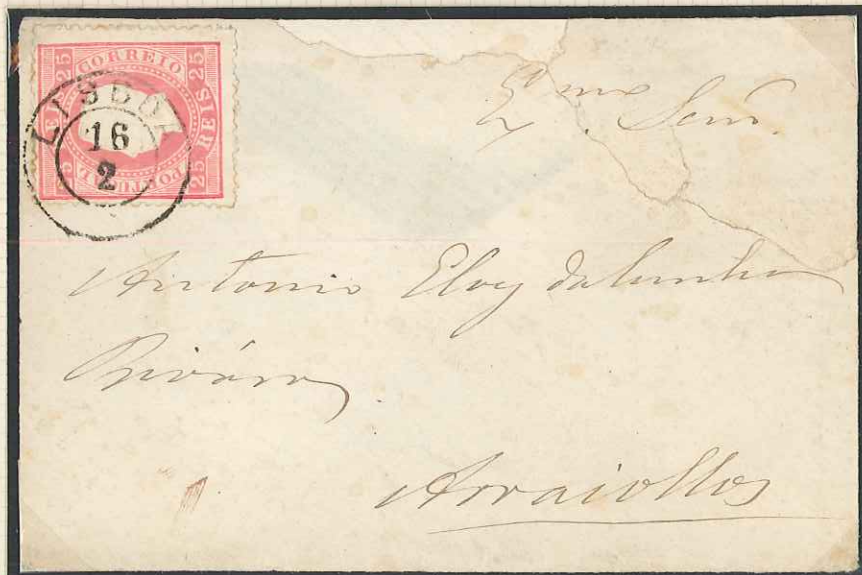 CORREIO
25 REIS 25
25
PORTUGAL
LISBOA
16
2
Exmo Senr.
Antonio Eloy da Cunha
Rivára
Arraiollos